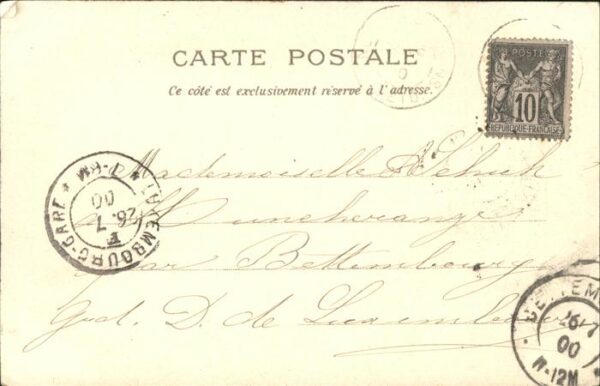 CARTE POSTALE
Ce côté est exclusivement réservé à l'adresse.
POSTES
10
REPUBLIQUE FRANÇAISE
Mademoiselle A Schick
à Huncherange
par Bettembourg
Gnd. D. de Luxembourg
LUXEMBOURG-GARE
26. 7
00
BETTEM
26 7
00
11-12M